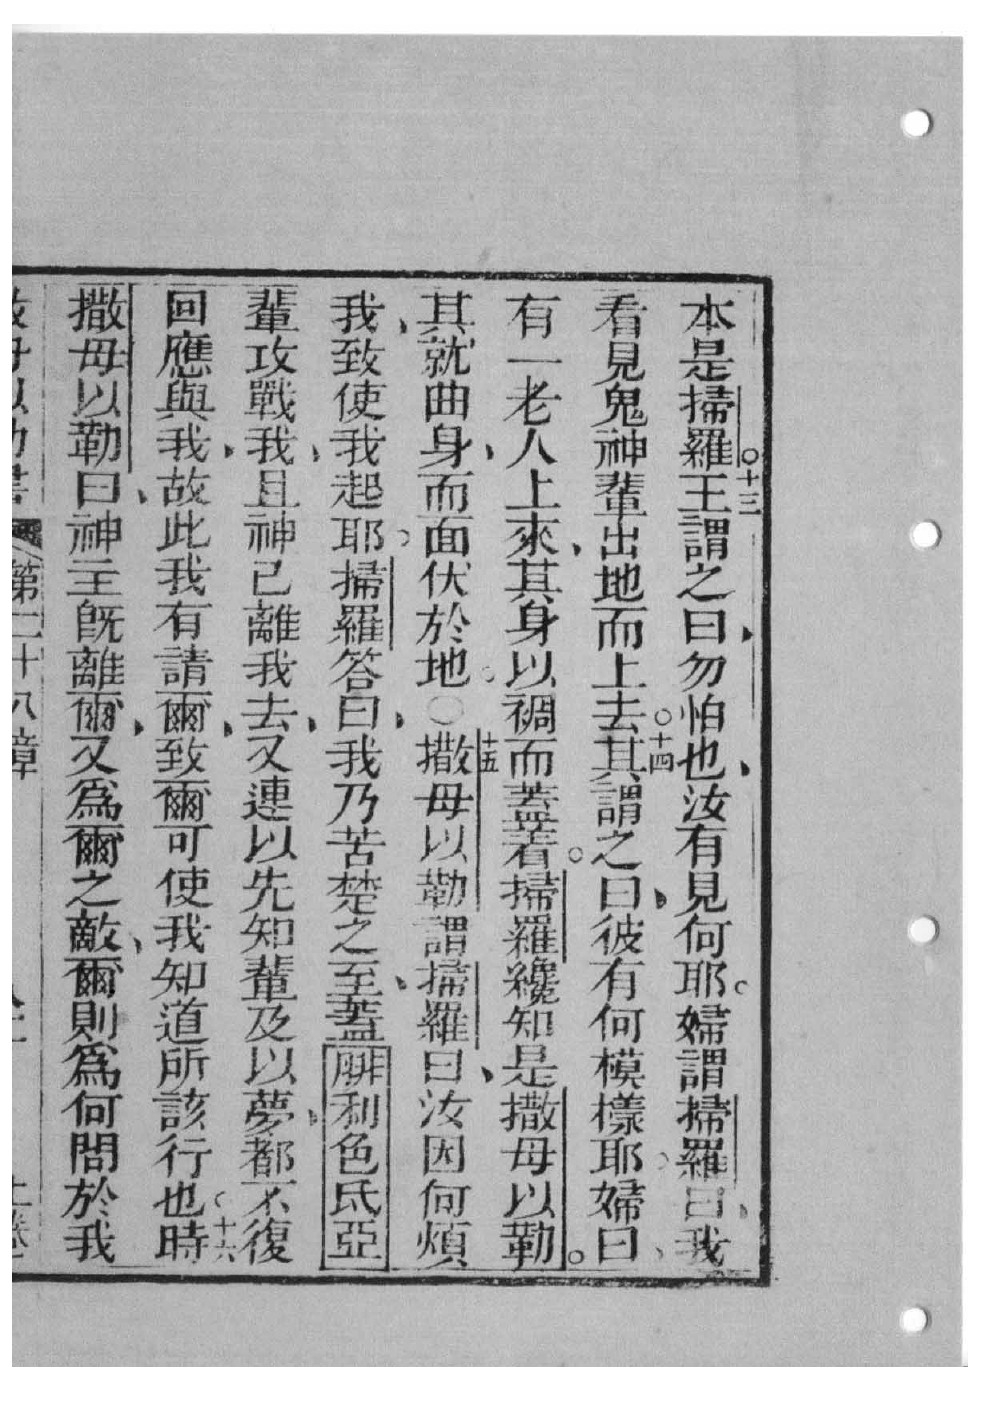 本是掃羅。十三王謂之曰、勿怕也、汝有見何耶。婦謂掃羅曰、我
看見鬼神輩出地而上去。十四其謂之曰、彼有何模樣耶。婦曰、
有一老人上來、其身以裯而蓋着。掃羅纔知是撒母以勒。
其就曲身、而面伏於地。○十五撒母以勒謂掃羅曰、汝因何煩
我、致使我起耶。掃羅答曰、我乃苦楚之至、蓋腓利色氐亞
輩攻戰我、且神已離我去、又連以先知輩及以夢、都不復
回應與我、故此我有請爾、致爾可使我知道所該行也。十六時
撒母以勒曰、神主既離爾、又為爾之敵、爾則為何問於我
第二十八章